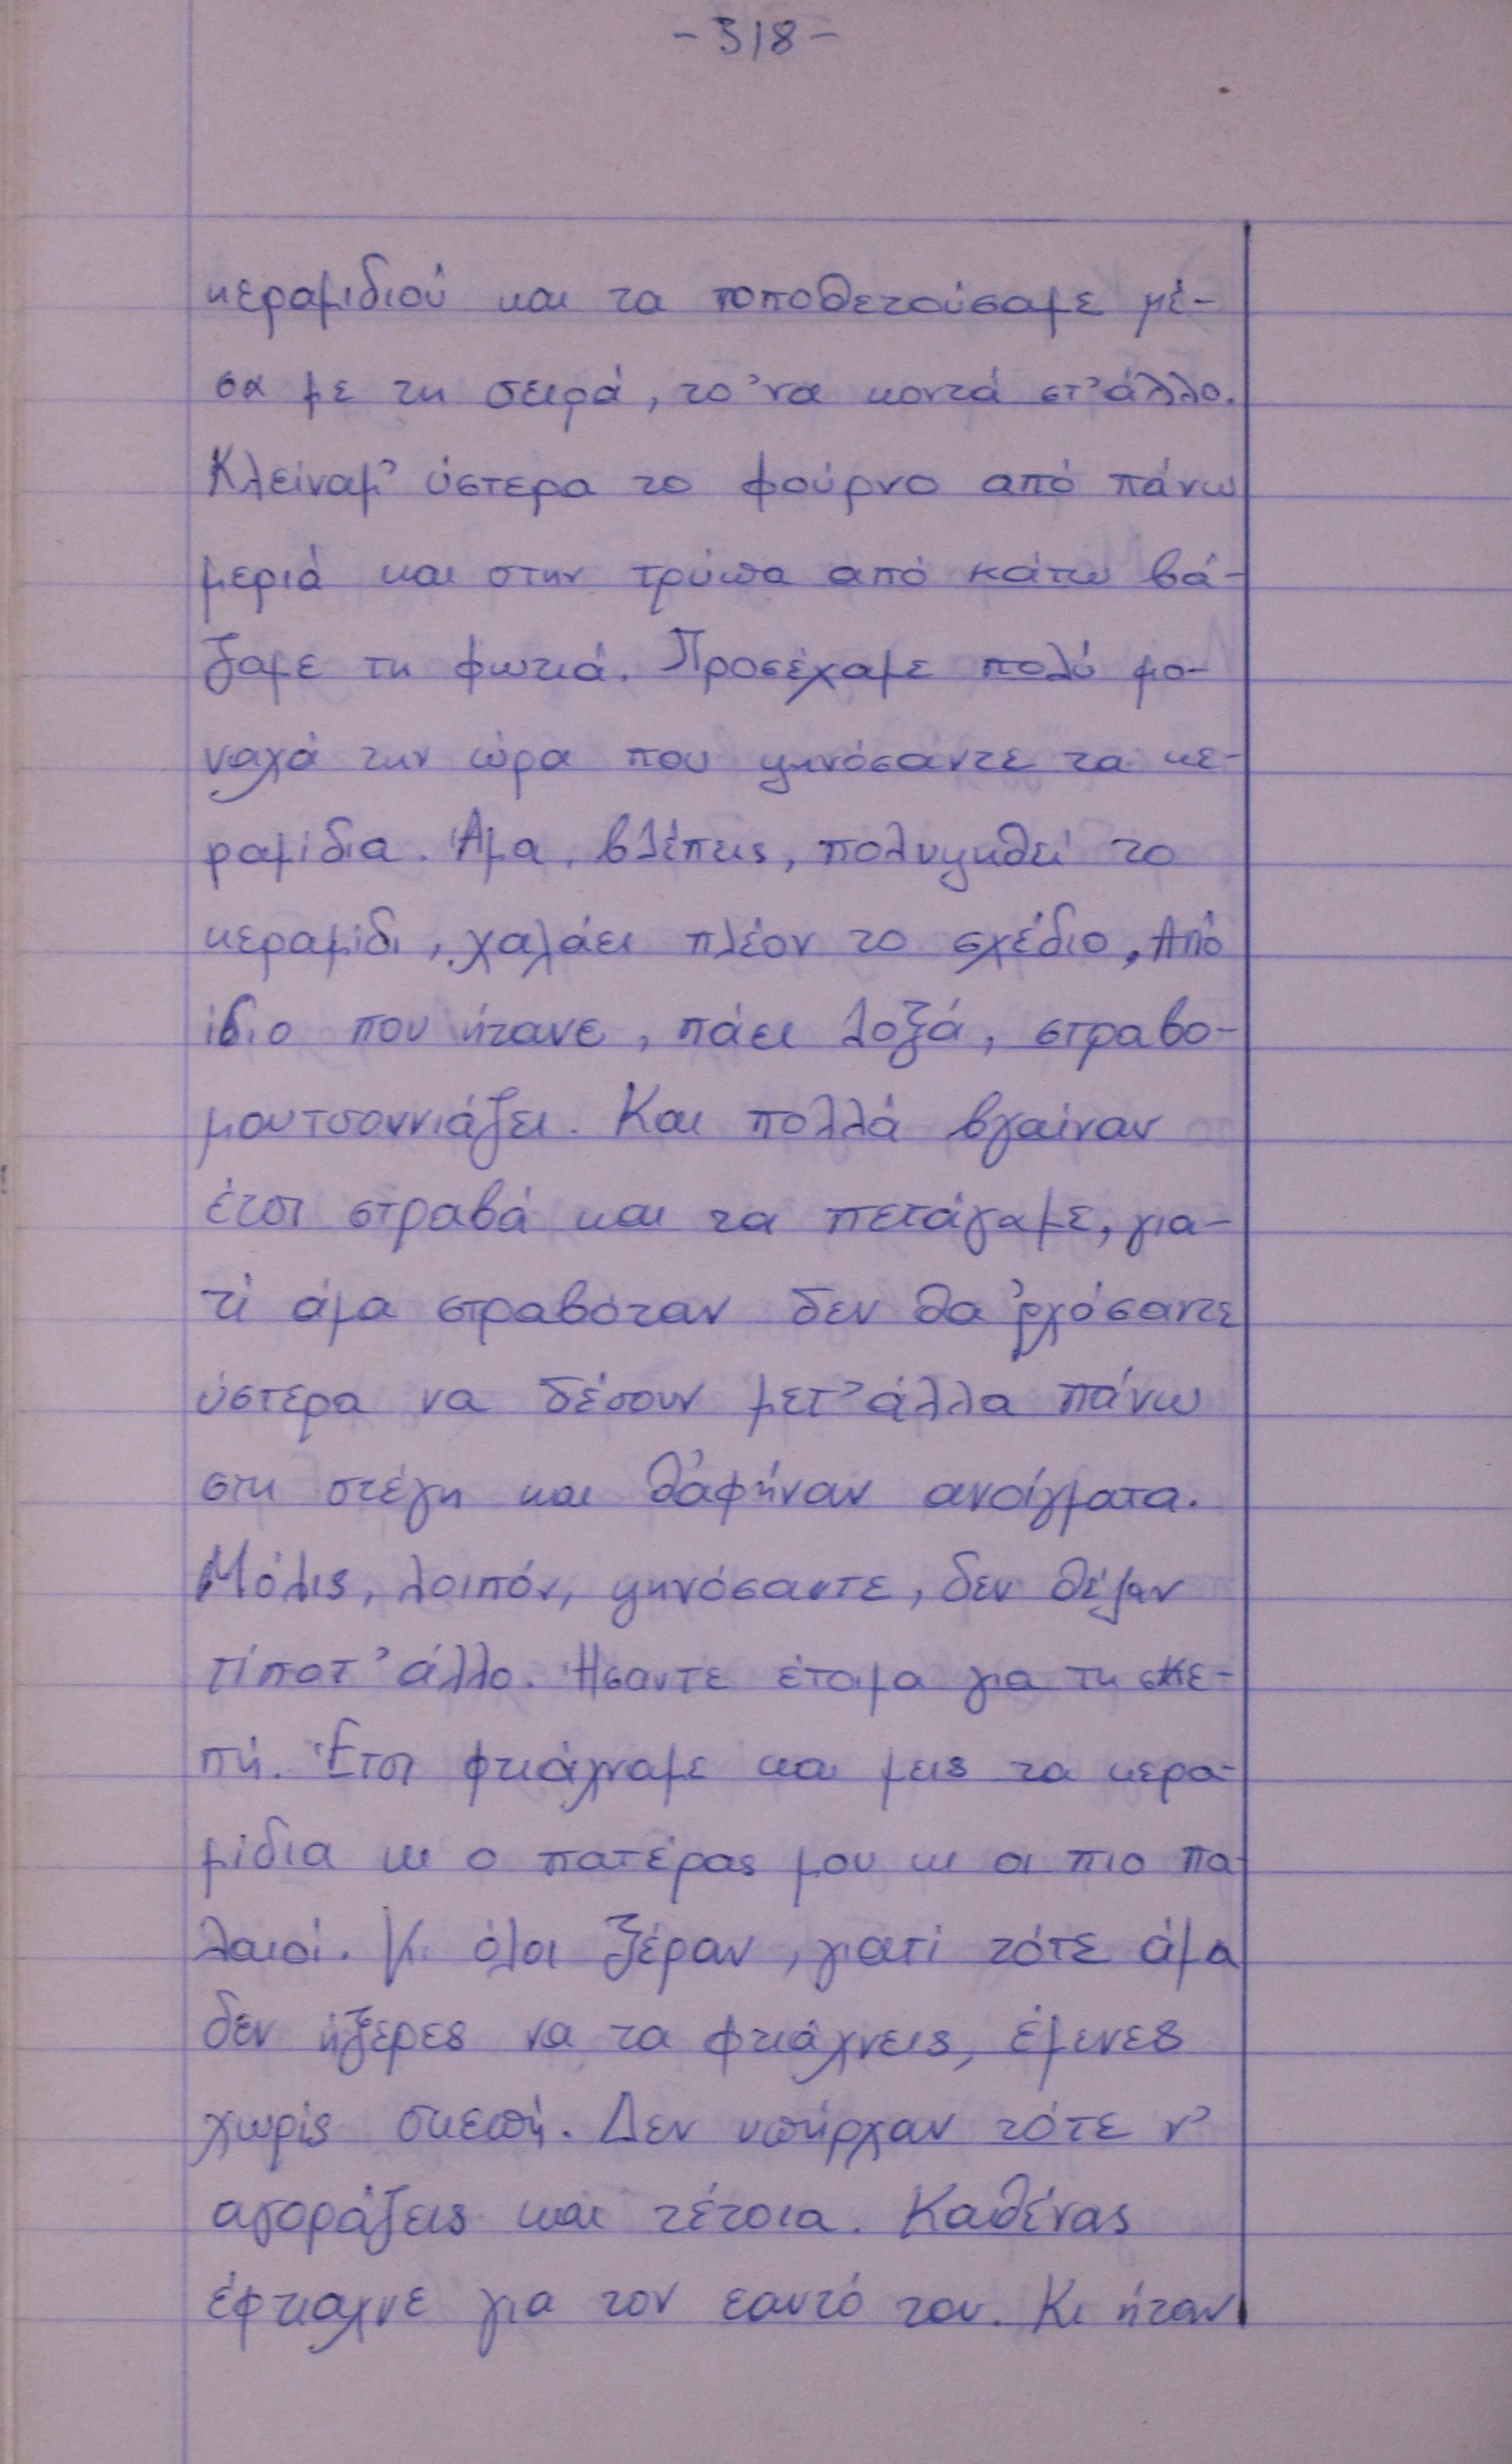 -318-
κεραμιδιού και τα τοποθετούσαμε μέ-
σα με τη σειρά, το 'να κοντά στ' άλλο.
Κλείναμ' ύστερα το φούρνο από πάνω
μεριά και στην τρύπα από κάτω βά-
ζαμε τη φωτιά. Προσέχαμε πολύ μο-
ναχά την ώρα που ψηνόσαντε τα κε-
ραμίδια. Άμα, βλέπεις, πολυψηθεί το
κεραμίδι, χαλάει πλέον το σχέδιο, Από
ίδιο που ήτανε, πάει λοξά, στραβο-
μουτσουνιάζει. Και πολλά βγαίναν
έτσι στραβά και τα πετάγαμε, για-
τί άμα στραβόταν δεν θα 'ρχόσαντε
ύστερα να δέσουν μετ' άλλα πάνω
στη στέγη και θ' αφήναν ανοίγματα.
Μόλις, λοιπόν, ψηνόσαντε, δεν θέλαν
τίποτ' άλλο. Ήσαντε έτοιμα για τη σκε-
πή. Έτσι φτιάχναμε και μεις τα κερα-
μίδια κι ο πατέρας μου κι οι πιο πα-
λαιοί. Κι όλοι ξέραν, γιατί τότε άμα
δεν ήξερες να τα φτιάχνεις, έμενες
χωρίς σκεπή. Δεν υπήρχαν τότε ν'
αγοράζεις και τέτοια. Καθένας
έφτιαχνε για τον εαυτό του. Κι ήταν